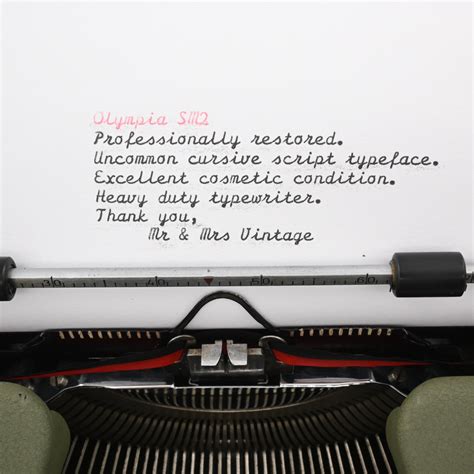 Olympia SM2
Professionally restored.
Uncommon cursive script typeface.
Excellent cosmetic condition.
Heavy duty typewriter.
Thank you,
Mr & Mrs Vintage
30 40 50 60